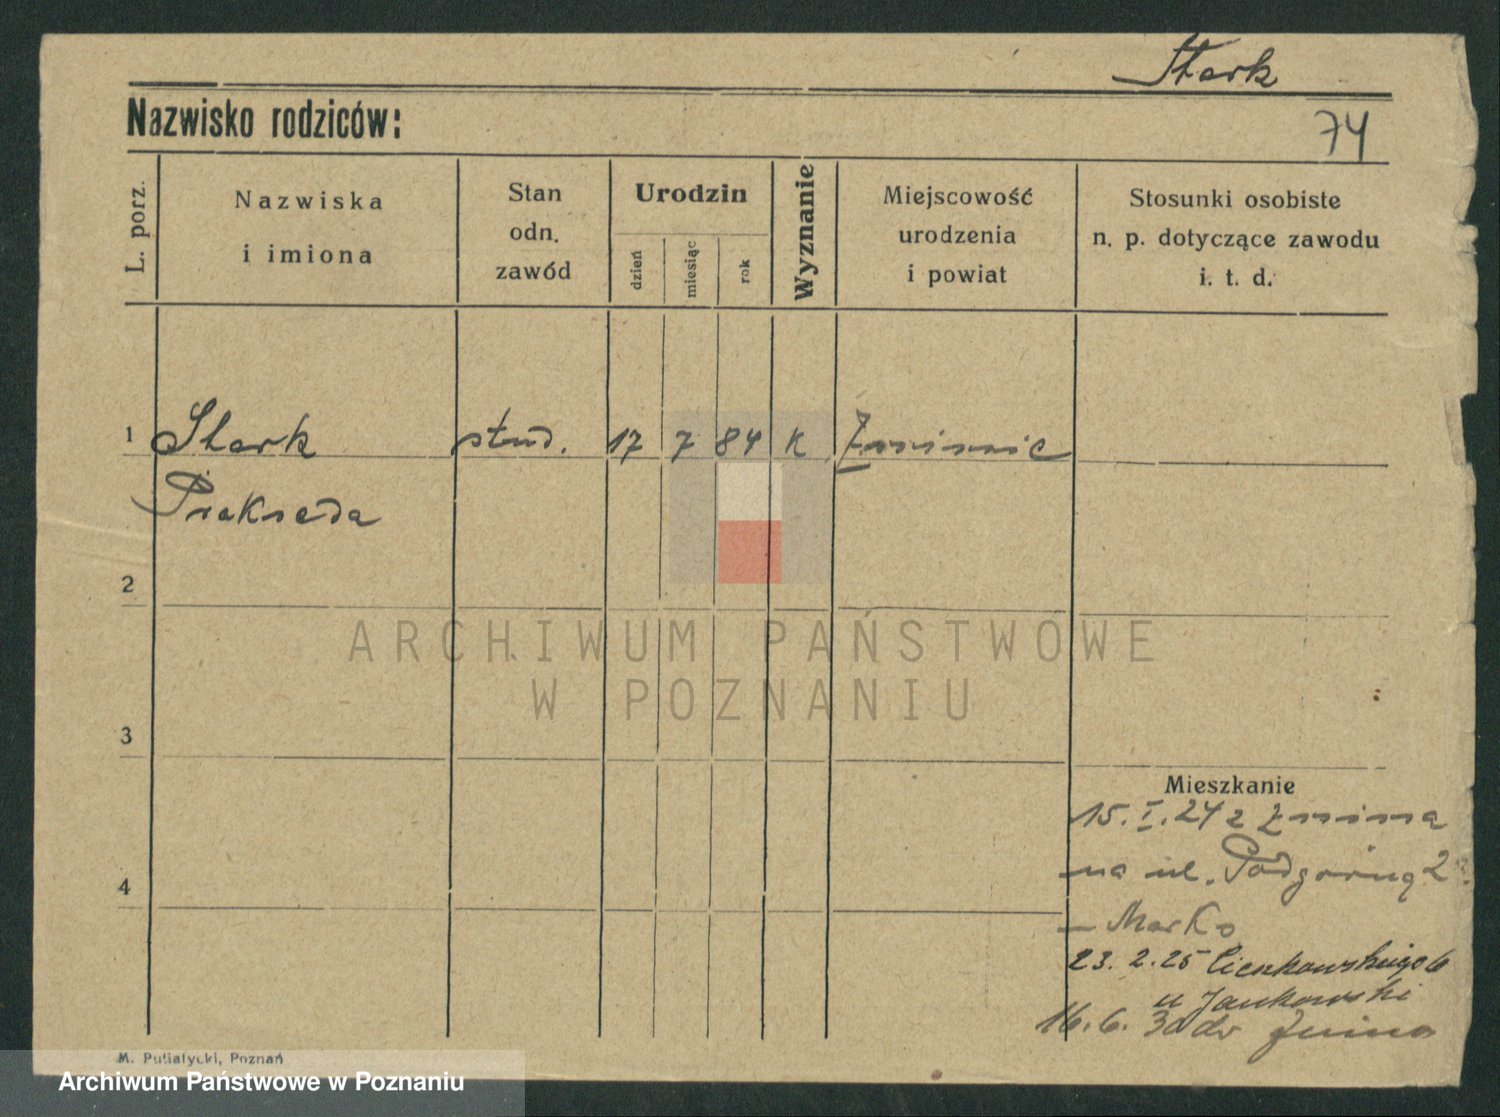 Stark
Nazwisko rodziców:
74
L. porz.
Nazwiska
i imiona
Stan
odn.
zawód
Urodzin
dzień
miesiąc
rok
Wyznanie
Miejscowość
urodzenia
i powiat
Stosunki osobiste
n. p. dotyczące zawodu
i. t. d.
1 Stark stud. 17 7 84 k
Prakseda
2
ARCHIWUM PAŃSTWOWE
W POZNANIU
3
Mieszkanie
15. I. 24 z Żnina
na ul. Podgórną 2
4
23. 2. 25 Cieszkowskiego 6
u Jankowski
16. 6. 30
M. Putiatycki, Poznań
Archiwum Państwowe w Poznaniu